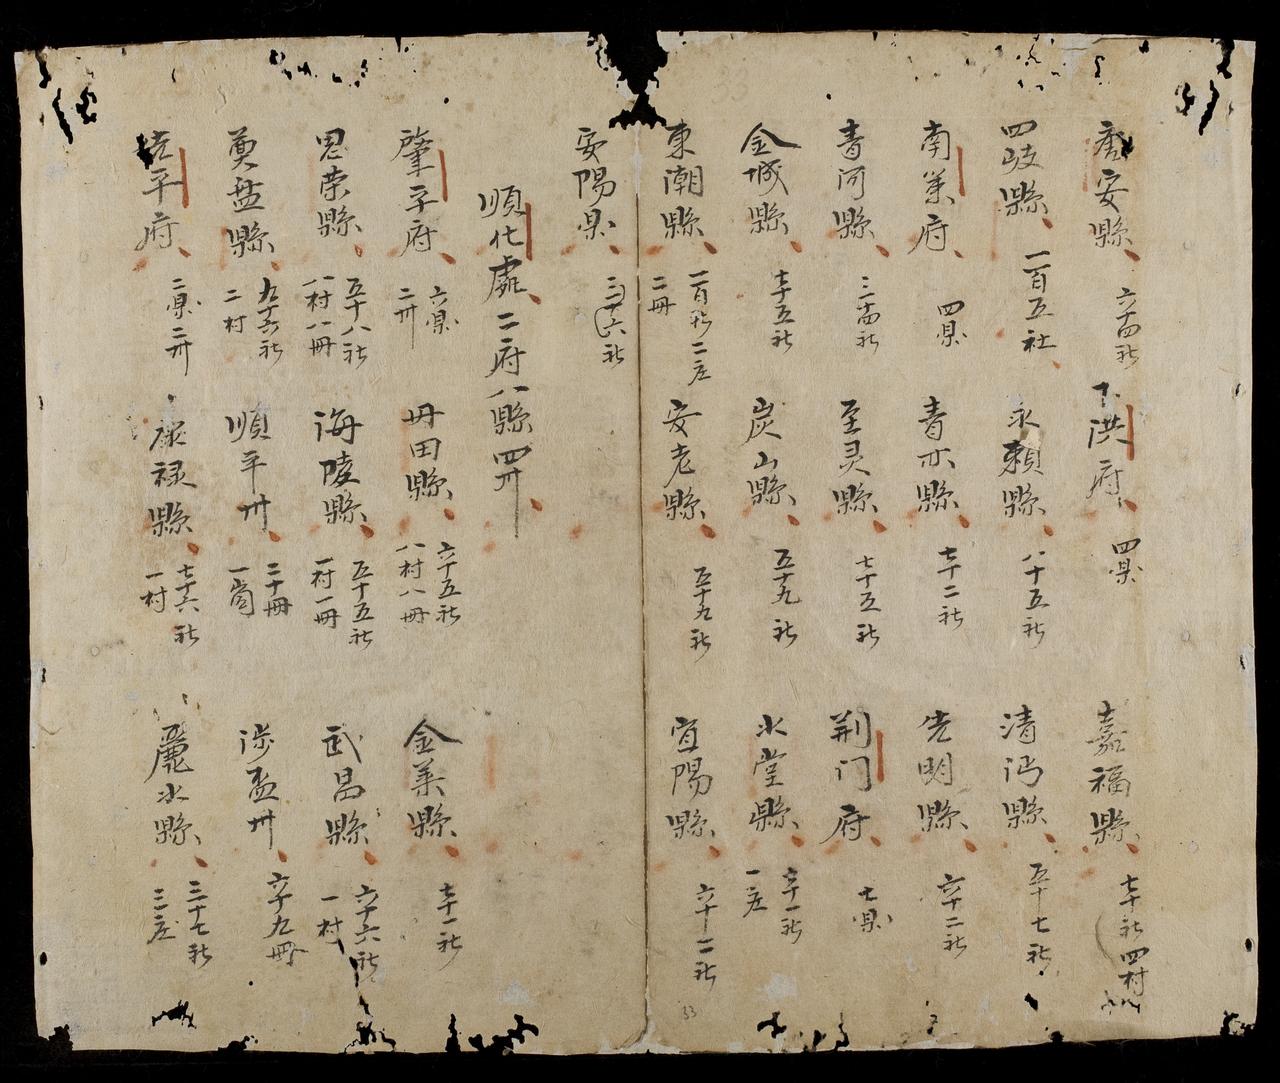 唐安縣 六十四社 下洪府 四県 嘉福縣 七十社 四村
四岐縣 一百五社 永賴縣 八十五社 清沔縣 五十七社
南策府 四県 青亦縣 七十二社 先明縣 六十二社
青河縣 三十四社 至灵縣 七十五社 荆门府 七県
金城縣 七十五社 炭山縣 五十九社 水堂縣 六十一社 一庄
東潮縣 一百社 二庄 二冊 安老縣 五十九社 宜陽縣 六十二社
安陽県 二十六社
順化處 二府八縣四州
肇平府 六県 二州 丹田縣 六十五社 八村八冊 金荼縣 七十一社
思荣縣 五十八社 一村八冊 海陵縣 五十五社 一村一冊 武昌縣 六十六社 一村
奠盘縣 九十六社 二村 順平州 二十冊 一崗 沙盃州 六十九冊
先平府 二県二州 康禄縣 七十六社 一村 麗水縣 三十七社 三庄